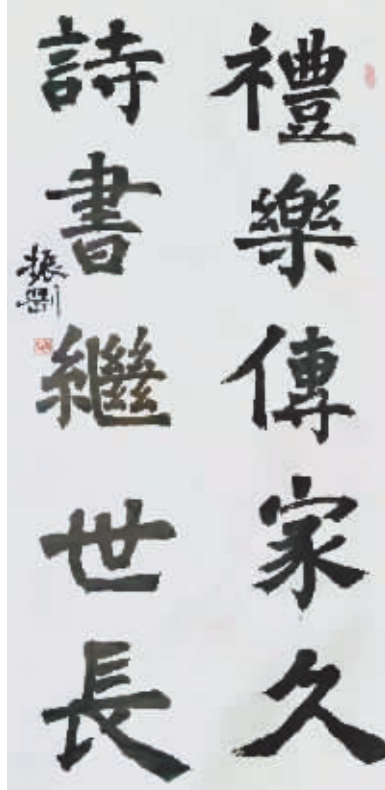 禮樂傳家久
詩書繼世長
振剛